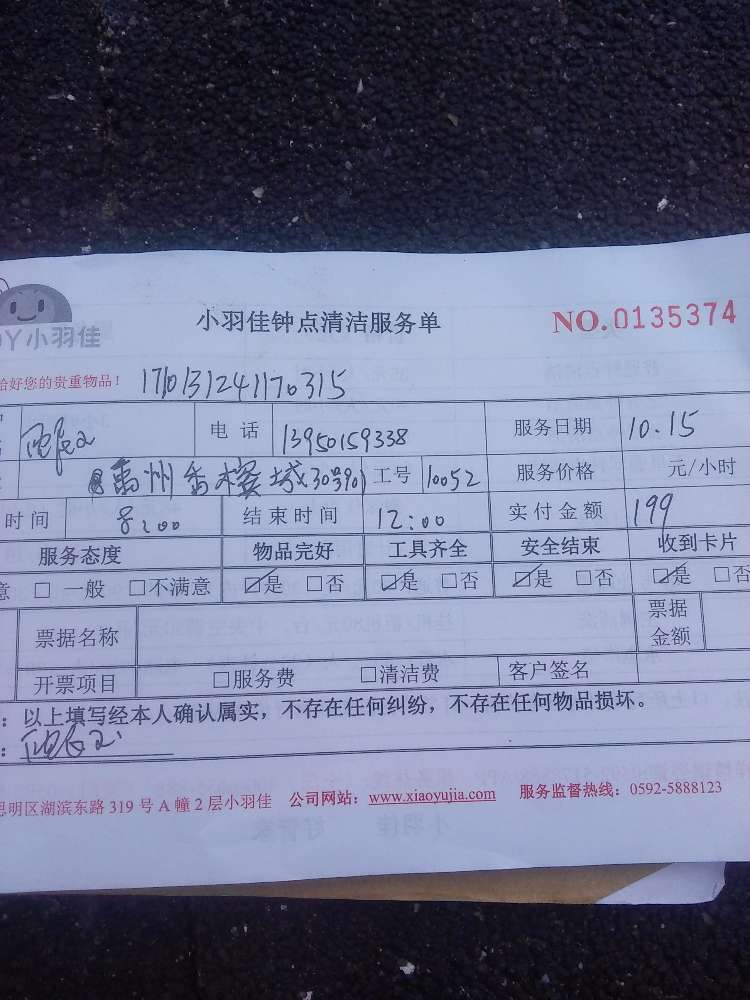 小羽佳钟点清洁服务单 NO.0135374
Y小羽佳
好您的贵重物品! 1710131241170315
电话 13950159338 服务日期 10.15
禹州香槟城 工号 10052 服务价格 元/小时
时间 8:00 结束时间 12:00 实付金额 199
服务态度 物品完好 工具齐全 安全结束 收到卡片
意 □ 一般 □不满意 ☑是 □否 ☑是 □否 ☑是 □否 ☑是 □否
票据名称 票据金额
开票项目 □服务费 □清洁费 客户签名
:以上填写经本人确认属实,不存在任何纠纷,不存在任何物品损坏。
思明区湖滨东路 319 号 A 幢 2 层小羽佳 公司网站:www.xiaoyujia.com 服务监督热线:0592-5888123